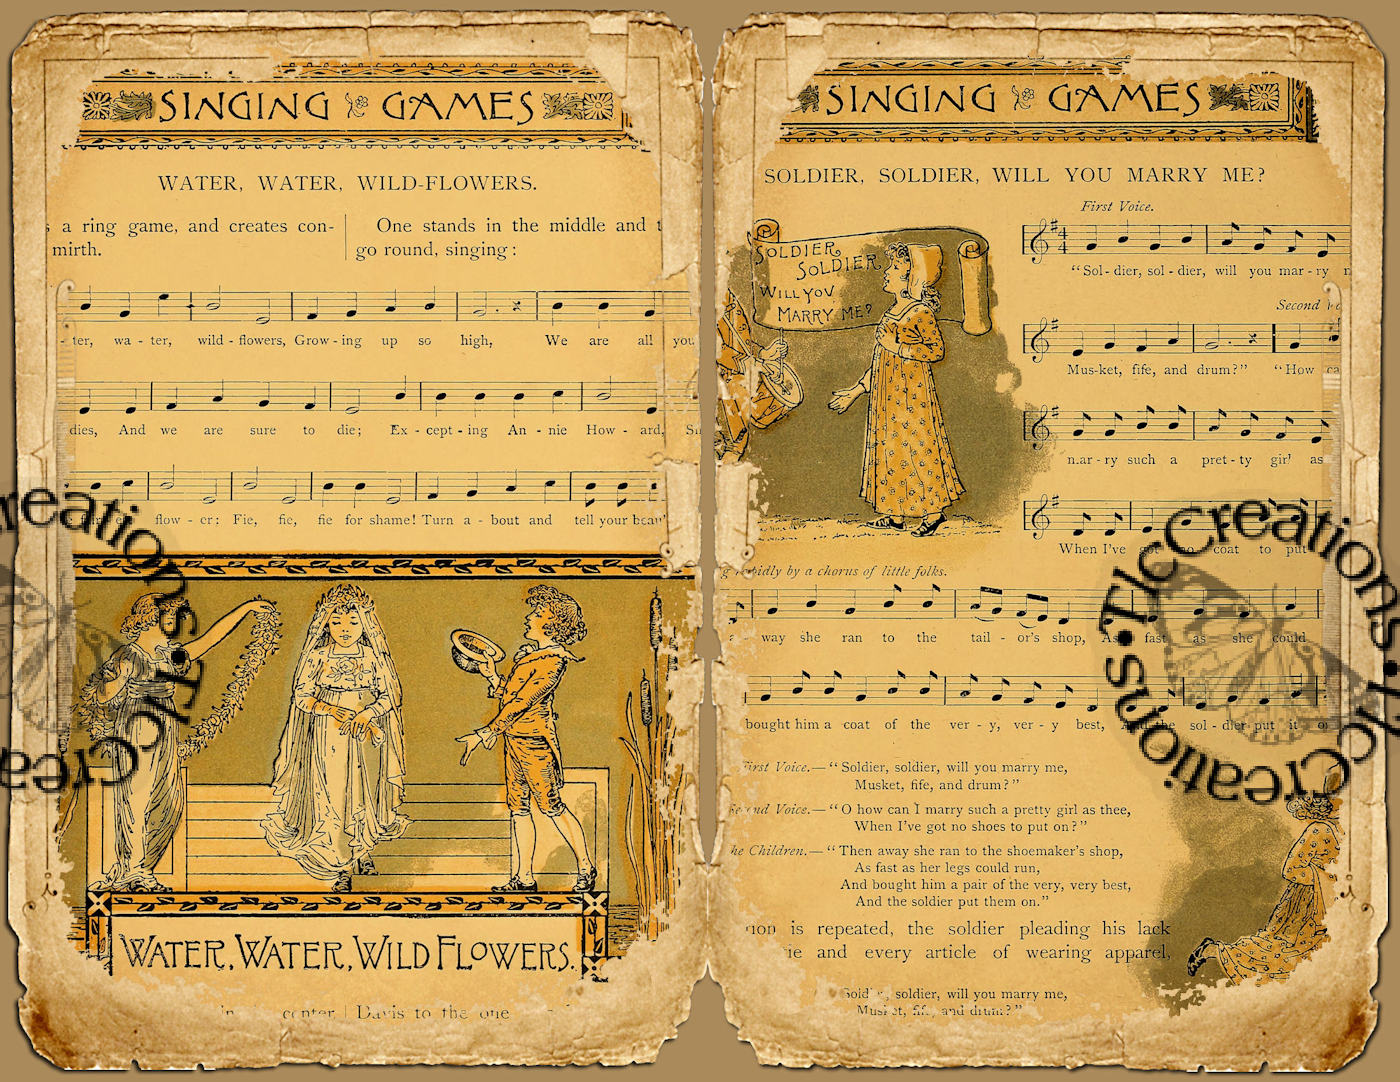 SINGING GAMES
WATER, WATER, WILD-FLOWERS.
a ring game, and creates con-
mirth.
One stands in the middle and
go round, singing:
ter, wa - ter, wild - flowers, Grow - ing up so high, We are all you
dies, And we are sure to die; Ex - cept - ing An - nie How - ard,
flow - er; Fie, fie, fie for shame! Turn a - bout and tell your
WATER, WATER, WILD FLOWERS.
center Davis to the one
SINGING GAMES
SOLDIER, SOLDIER, WILL YOU MARRY ME?
First Voice.
SOLDIER,
SOLDIER
WILL YOU
MARRY ME?
"Sol - dier, sol - dier, will you mar - ry
Second
Mus-ket, fife, and drum?" "How
mar - ry such a pret - ty girl as
When I've got no coat to put
rapidly by a chorus of little folks.
way she ran to the tail - or's shop, As fast as she could
bought him a coat of the ver - y, ver - y best, And the sol - dier put it
First Voice.—"Soldier, soldier, will you marry me,
Musket, fife, and drum?"
Second Voice.—"O how can I marry such a pretty girl as thee,
When I've got no shoes to put on?"
he Children.—"Then away she ran to the shoemaker's shop,
As fast as her legs could run,
And bought him a pair of the very, very best,
And the soldier put them on."
is repeated, the soldier pleading his lack
and every article of wearing apparel,
soldier, will you marry me,
and drum?"
Creations • Tlc
Creations • Tlc Creations •